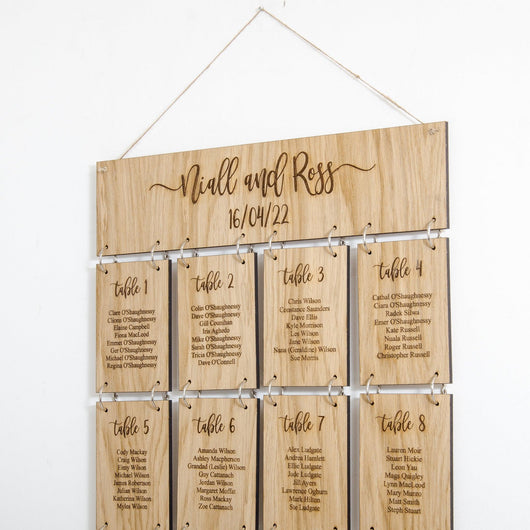 Niall and Ross
16/04/22
table 1
Clara O'Shaughnessy
Cliona O'Shaughnessy
Elaine Campbell
Fiona MacLeod
Emmet O'Shaughnessy
Ger O'Shaughnessy
Michael O'Shaughnessy
Regina O'Shaughnessy
table 2
Colin O'Shaughnessy
Dave O'Shaughnessy
Gill Counihan
Iris Agbodo
Mike O'Shaughnessy
Sarah O'Shaughnessy
Tricia O'Shaughnessy
Dave O'Connell
table 3
Chris Wilson
Constance Saunders
Dave Ellis
Kyle Morrison
Les Wilson
Jane Wilson
Nana (Geraldine) Wilson
Sue Morris
table 4
Cathal O'Shaughnessy
Ciara O'Shaughnessy
Radek Silwa
Emer O'Shaughnessy
Kate Russell
Nuala Russell
Roger Russell
Christopher Russell
table 5
Cody Mackay
Craig Wilson
Emy Wilson
Michael Wilson
James Robertson
Julian Wilson
Katherina Wilson
Myles Wilson
table 6
Amanda Wilson
Ashley Macpherson
Grandad (Leslie) Wilson
Guy Cattanach
Jordan Wilson
Margaret Moffat
Ross Mackay
Zoe Cattanach
table 7
Alex Ludgate
Andrea Hamlett
Ellie Ludgate
Jude Ludgate
Jill Ayers
Lawrence Ogburn
Mark Hilton
Sue Ludgate
table 8
Lauren Moir
Stuart Hickie
Leon Yau
Maga Quigley
Lynn MacLeod
Mary Munro
Matt Smith
Steph Stuart